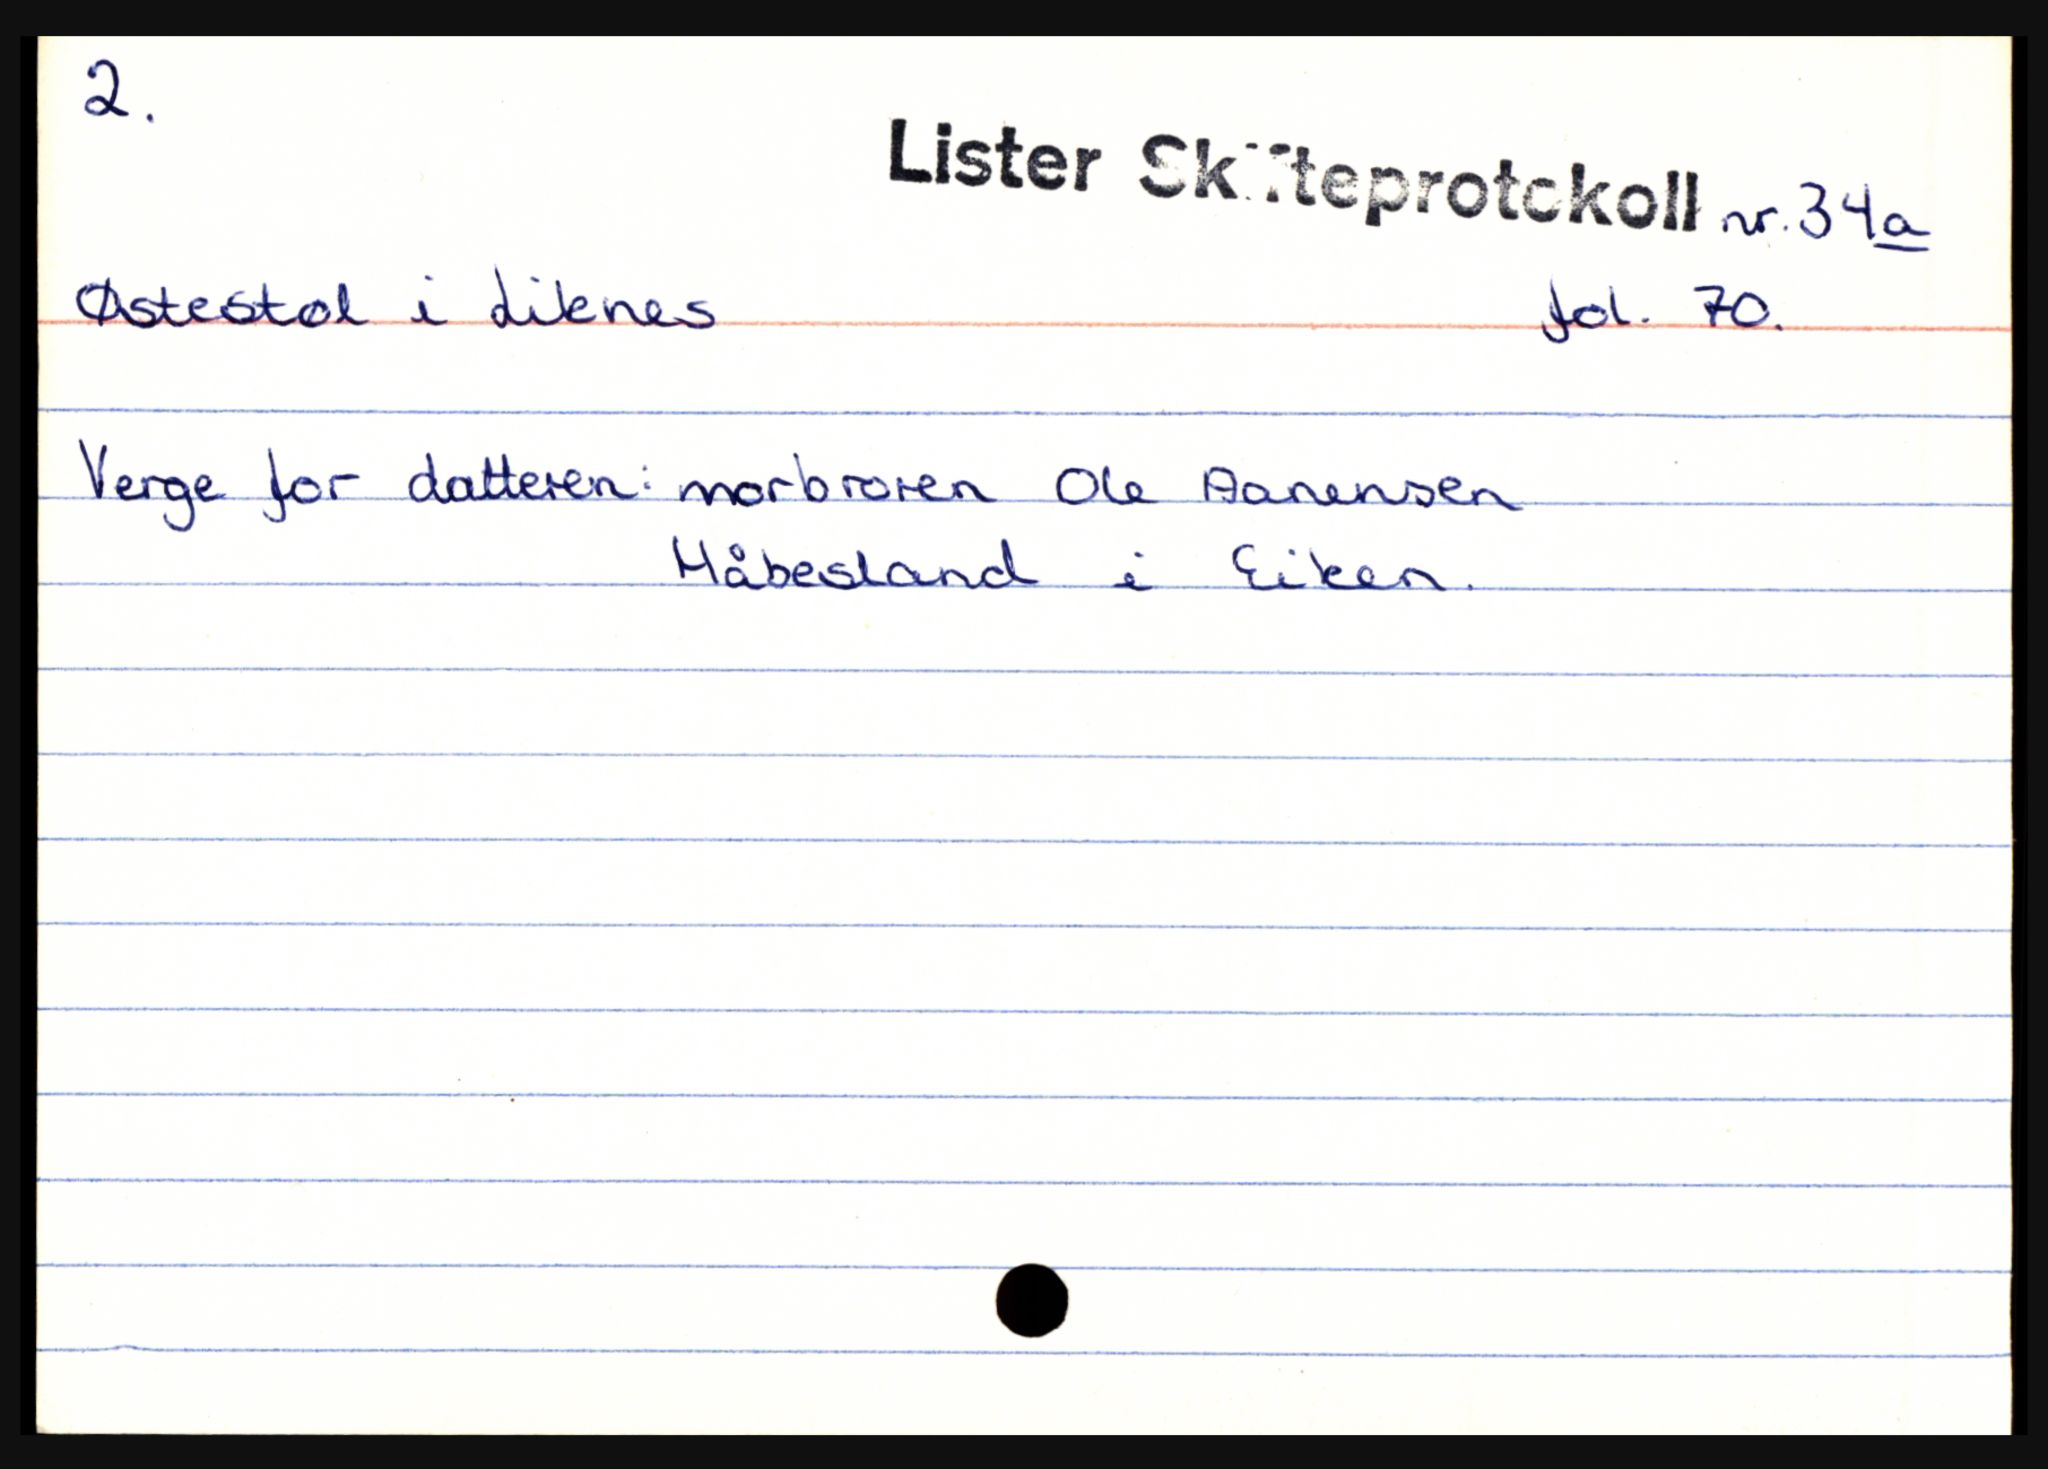 2.
Lister Skifteprotokoll nr. 34a
Østestøl i Liknes fol. 70.
Verge for datteren: morbroren Ole Aanensen
Håbesland i Eiken.